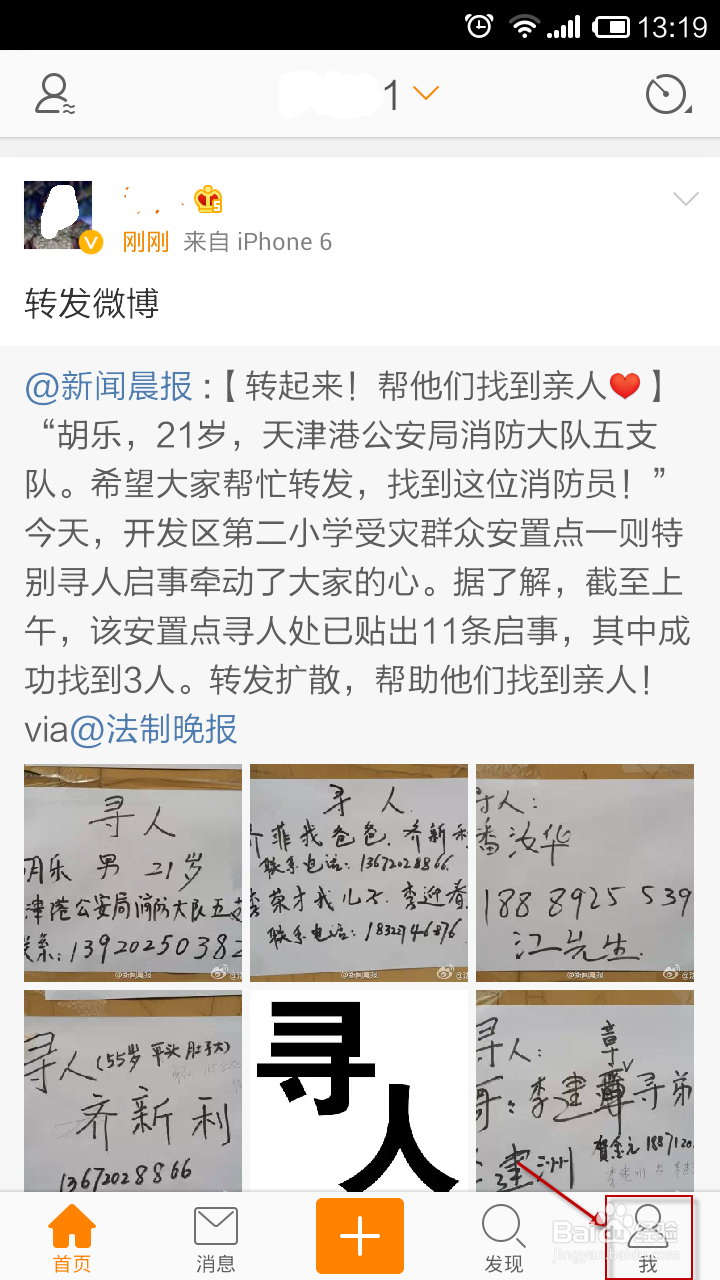 13:19
1
刚刚 来自 iPhone 6
转发微博
@新闻晨报 :【 转起来！帮他们找到亲人❤ 】
“胡乐，21岁，天津港公安局消防大队五支
队。希望大家帮忙转发，找到这位消防员！”
今天，开发区第二小学受灾群众安置点一则特
别寻人启事牵动了大家的心。据了解，截至上
午，该安置点寻人处已贴出11条启事，其中成
功找到3人。转发扩散，帮助他们找到亲人！
via@法制晚报
寻人
胡乐 男 21岁
津港公安局消防大队五支
联系:13920250382
寻 人
齐菲我爸爸 齐新利
联系电话: 13672028866
荣才我儿子 李迎春
联系电话:
寻人:
潘汝华
188 8925 539
江先生
寻人 (55岁 平头 肚子大)
齐新利
13672028866
寻人
寻人:
寻弟
首页
消息
发现
我
Baidu 经验
jingyan.baidu.com